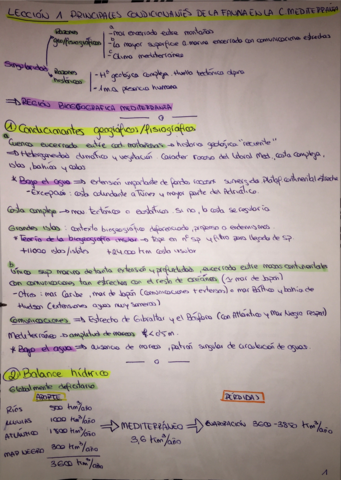 LECCIÓN 1 PRINCIPALES CONDICIONANTES DE LA FAUNA EN LA C. MEDITERRÁNEA
Razones geográficas/fisiográficas
- Mar encerrado entre montañas
- La mayor superficie marina encerrada con comunicaciones estrechas
- Clima mediterráneo
Singularidad
Razones históricas
- Hª geológica compleja
- 1 m.a. presencia humana
⇒ REGIÓN BIOGEOGRÁFICA MEDITERRÁNEA
① Condicionantes geográficos/fisiográficos
Cuenca encerrada entre cad. montañosas → historia geológica "reciente"
⇒ Heterogeneidad climática y vegetación. Carácter rocoso del litoral Med. costa compleja,
islas, bahías y cabos
* Bajo el agua ⇒ extensión importante de fondos rocosos sumergidos. Plataf. continental estrecha
- Excepción: costa colindante a Túnez y mayor parte del Adriático.
Costa compleja → mov. tectónicos o eustáticos. Si no, la costa se regulariza
Grandes islas: contexto biogeográfico diferenciado, propenso a endemismos
* Teoría de la biogeografía insular →
+11000 islas/islotes +24000 km costa insular
Único
con comunicaciones tan estrechas con el resto de océanos (≠ mar de Japón)
- Otros: mar Caribe, mar de Japón (comunicaciones + extensas) o mar Báltico y bahía de
Hudson (extensiones agua muy someras)
Comunicaciones ⇒ Estrecho de Gibraltar y el Bósforo (con Atlántico y Mar Negro respect)
Mediterráneo → amplitud de mareas < 0,5 m.
* Bajo el agua ⇒ ausencia de mareas, patrón singular de circulación de aguas.
② Balance hídrico
Globalmente deficitario
APORTE PÉRDIDAS
RÍOS 500 km³/año
LLUVIAS 1000 km³/año
ATLÁNTICO 1800 km³/año ⇒ MEDITERRÁNEO ⇒ EVAPORACIÓN 3600 - 3850 km³/año
3,6 km³/año
MAR NEGRO 300 km³/año
3600 km³/año
1